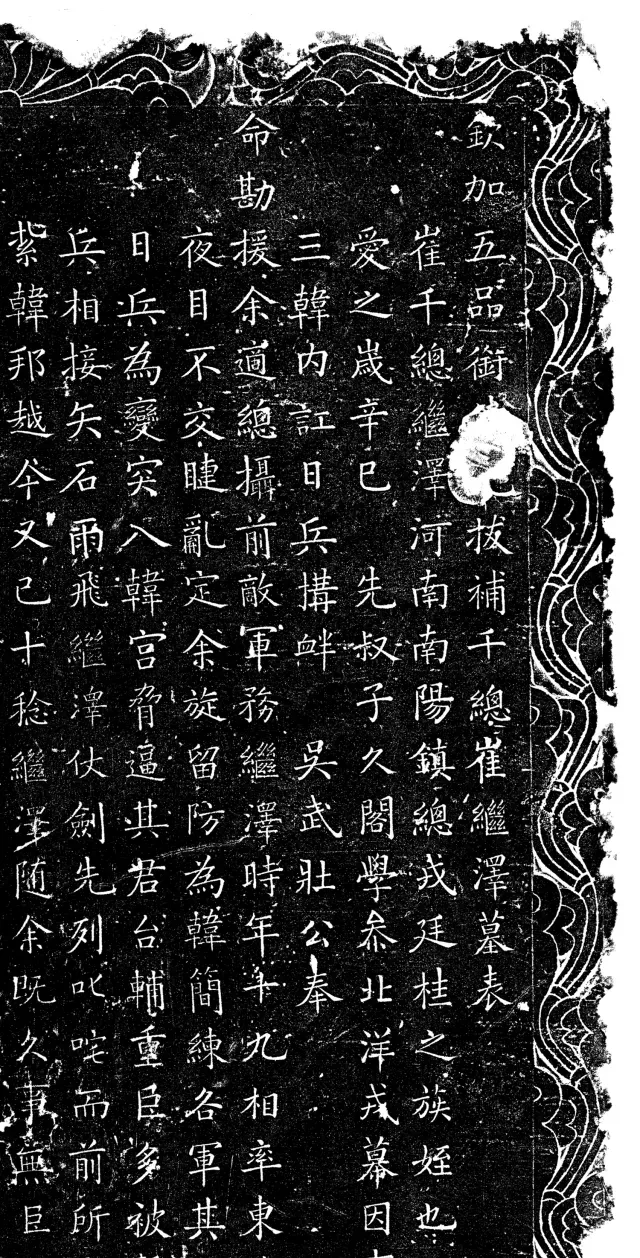 欽加五品銜拔補千總崔繼澤墓表
崔千總繼澤河南南陽鎮總戎廷桂之族姪也
愛之歲辛巳先叔子久閣學叅北洋戎幕因
三韓內訌日兵搆衅吳武壯公奉
命勘援余適總攝前敵軍務繼澤時年十九相率東
夜目不交睫亂定余旋留防為韓簡練各軍其
日兵為變突入韓宮脅逼其君台輔重臣多被
兵相接矢石雨飛繼澤仗劍先列叱咤而前所
紮韓邦越今又已十稔繼澤随余既久事無巨